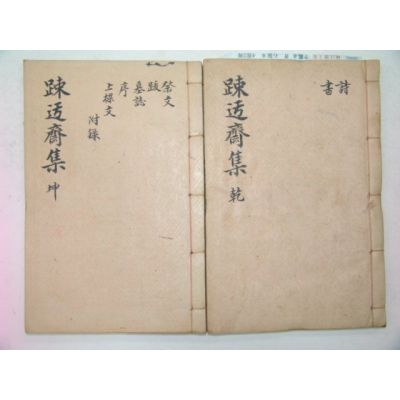 詩
書
踈适齋集 乾
祭文
跋
墓誌
序
上樑文
附錄
踈适齋集 坤